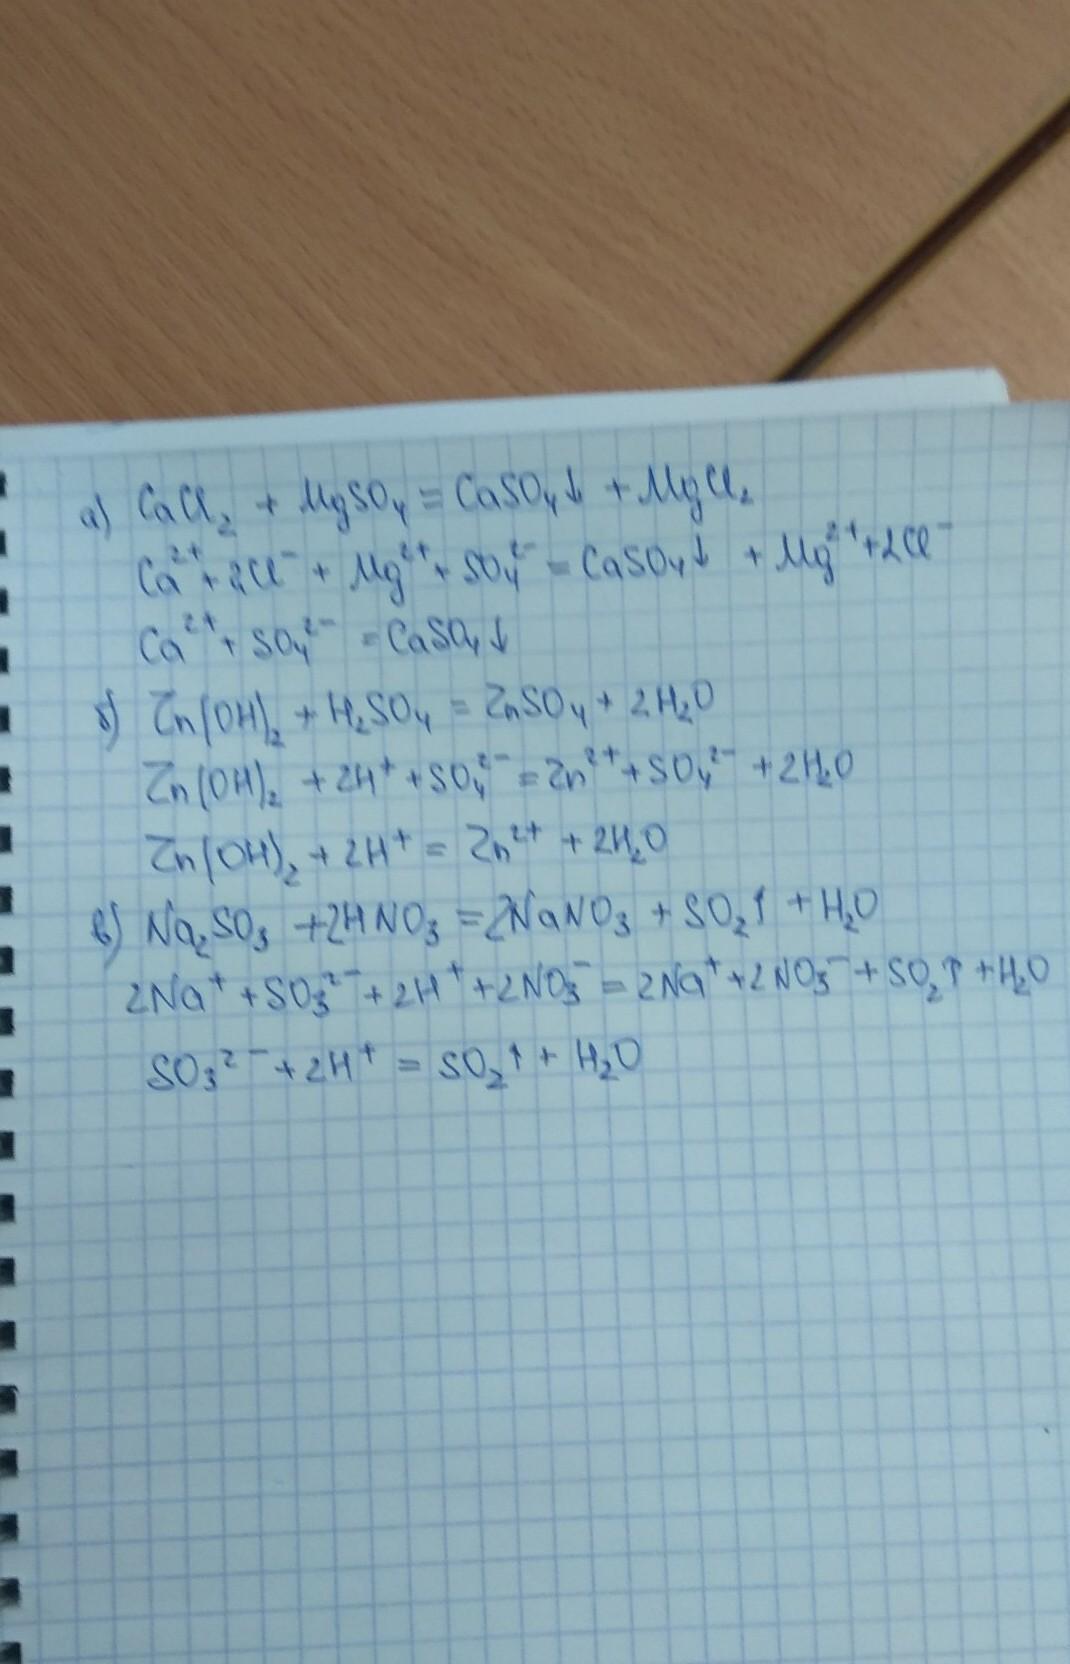 а) CaCl₂ + MgSO₄ = CaSO₄↓ + MgCl₂
Ca²⁺ + 2Cl⁻ + Mg²⁺ + SO₄²⁻ = CaSO₄↓ + Mg²⁺ + 2Cl⁻
Ca²⁺ + SO₄²⁻ = CaSO₄↓
б) Zn(OH)₂ + H₂SO₄ = ZnSO₄ + 2H₂O
Zn(OH)₂ + 2H⁺ + SO₄²⁻ = Zn²⁺ + SO₄²⁻ + 2H₂O
Zn(OH)₂ + 2H⁺ = Zn²⁺ + 2H₂O
в) Na₂SO₃ + 2HNO₃ = 2NaNO₃ + SO₂↑ + H₂O
2Na⁺ + SO₃²⁻ + 2H⁺ + 2NO₃⁻ = 2Na⁺ + 2NO₃⁻ + SO₂↑ + H₂O
SO₃²⁻ + 2H⁺ = SO₂↑ + H₂O